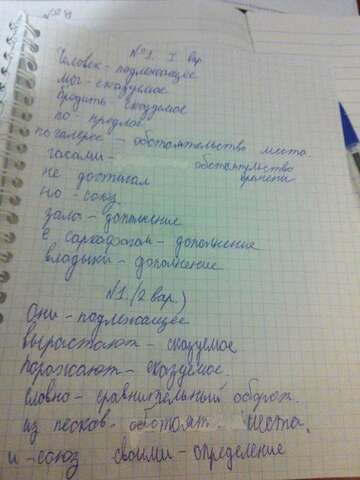 №1. I вар
Человек - подлежащее
мог - сказуемое
бродить - сказуемое
по - предлог
по галерее - обстоятельство места.
часами - обстоятельство
времени
не достигал
но - союз
зала - дополнение
с саркофагом - дополнение
владыки - дополнение
№1. (2 вар.)
Они - подлежащее
вырастают - сказуемое
поражают - сказуемое.
словно - сравнительный оборот.
из песков - обстоят. места.
и - союз своими - определение